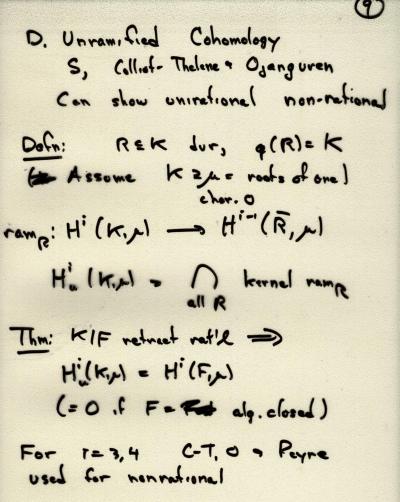 9
D. Unramified Cohomology
S, Colliot-Thelene & Ojanguren
Can show unirational non-rational
Defn: R ⊆ K dvr, q(R) = K
Assume K ⊇ μ = roots of one)
char. 0
ram_R: Hⁱ(K,μ) → Hⁱ⁻¹(R̄,μ)
Hⁱ_u(K,μ) = ⋂ kernel ram_R
all R
Thm: K/F retract rat'l ⇒
Hⁱ_u(K,μ) = Hⁱ(F,μ)
(=0 if F = alg. closed)
For i=3,4 C-T, O & Peyre
used for nonrational